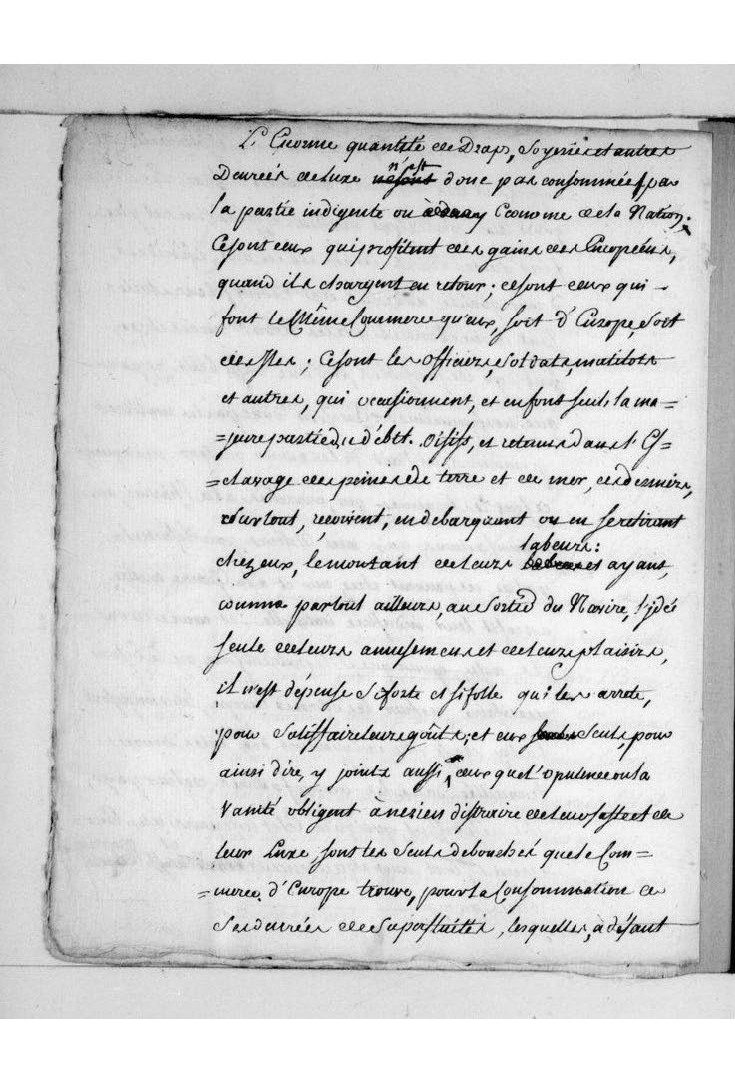 L'Enorme quantité de Draps, Soyeries et autres
Denrées de Luxe n'est donc pas consommée par
la partie indigente ou Econome de la Nation.
Ce sont ceux qui profitent des gains des Européens,
quand ils chargent en retour; ce sont ceux qui
font le Même Commerce qu'eux, soit d'Europe, Soit
des Isles; Ce sont les Officiers, Soldats, matelots
et autres, qui occasionnent, et en font seuls la ma=
=jeure partie du débit. Oisifs, et retenus dans l'Es=
=clavage des peines de terre et de mer, ces derniers,
Surtout, reçoivent, en debarquant ou en se retirant
labeurs:
chez eux, le montant de leurs et ayant,
comme partout ailleurs, au Sortir du Navire, l'idée
seule de leurs amusemens et de leurs plaisirs,
il n'est dépense Si forte et si folle qui les arrete,
pour Satisfaire leurs goûts; et eux Seuls, pour
ainsi dire, y joints aussi ceux que l'opulence ou la
Vanité obligent à ne rien distraire de leur faste et de
leur Luxe, sont les Seuls debouchés que le Com=
=merce d'Europe trouve, pour la Consommation de
Ses denrées de Superfluités, lesquelles, à défaut